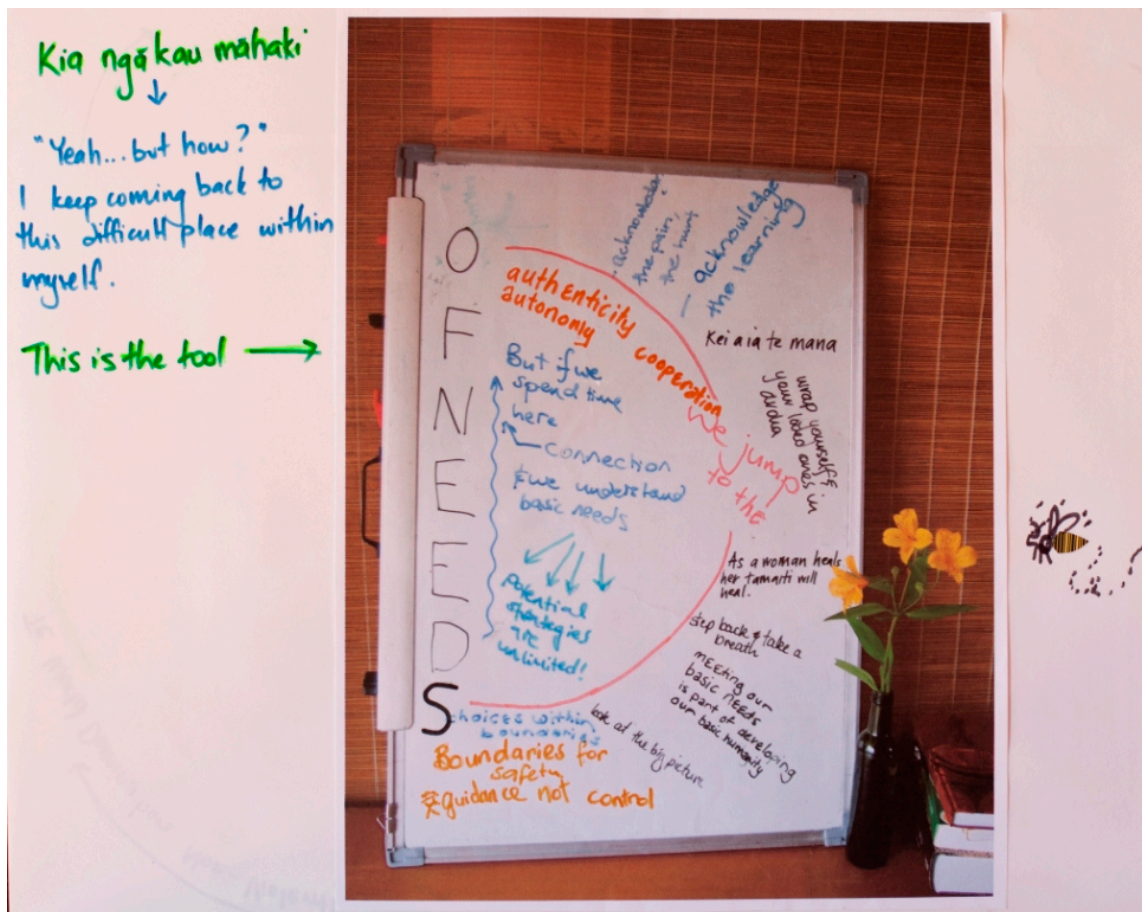 Kia ngākau māhaki
"Yeah...but how?"
I keep coming back to
this difficult place within
myself.
This is the tool
O
F
N
E
E
D
S
· acknowledge
the pain,
the hurt
— acknowledge
the learning
authenticity
autonomy
cooperation
We jump
to the
But if we
spend time
here
connection
& we understand
basic needs
potential
strategies
are
unlimited!
Kei a ia te mana
wrap yourself &
your loved ones in
aroha
As a woman heals
her tamariti will
heal.
step back & take a
breath
MEEting our
basic nEEDS
is part of developing
our basic humanity
look at the big picture
choices within
boundaries
Boundaries for
safety
guidance not control